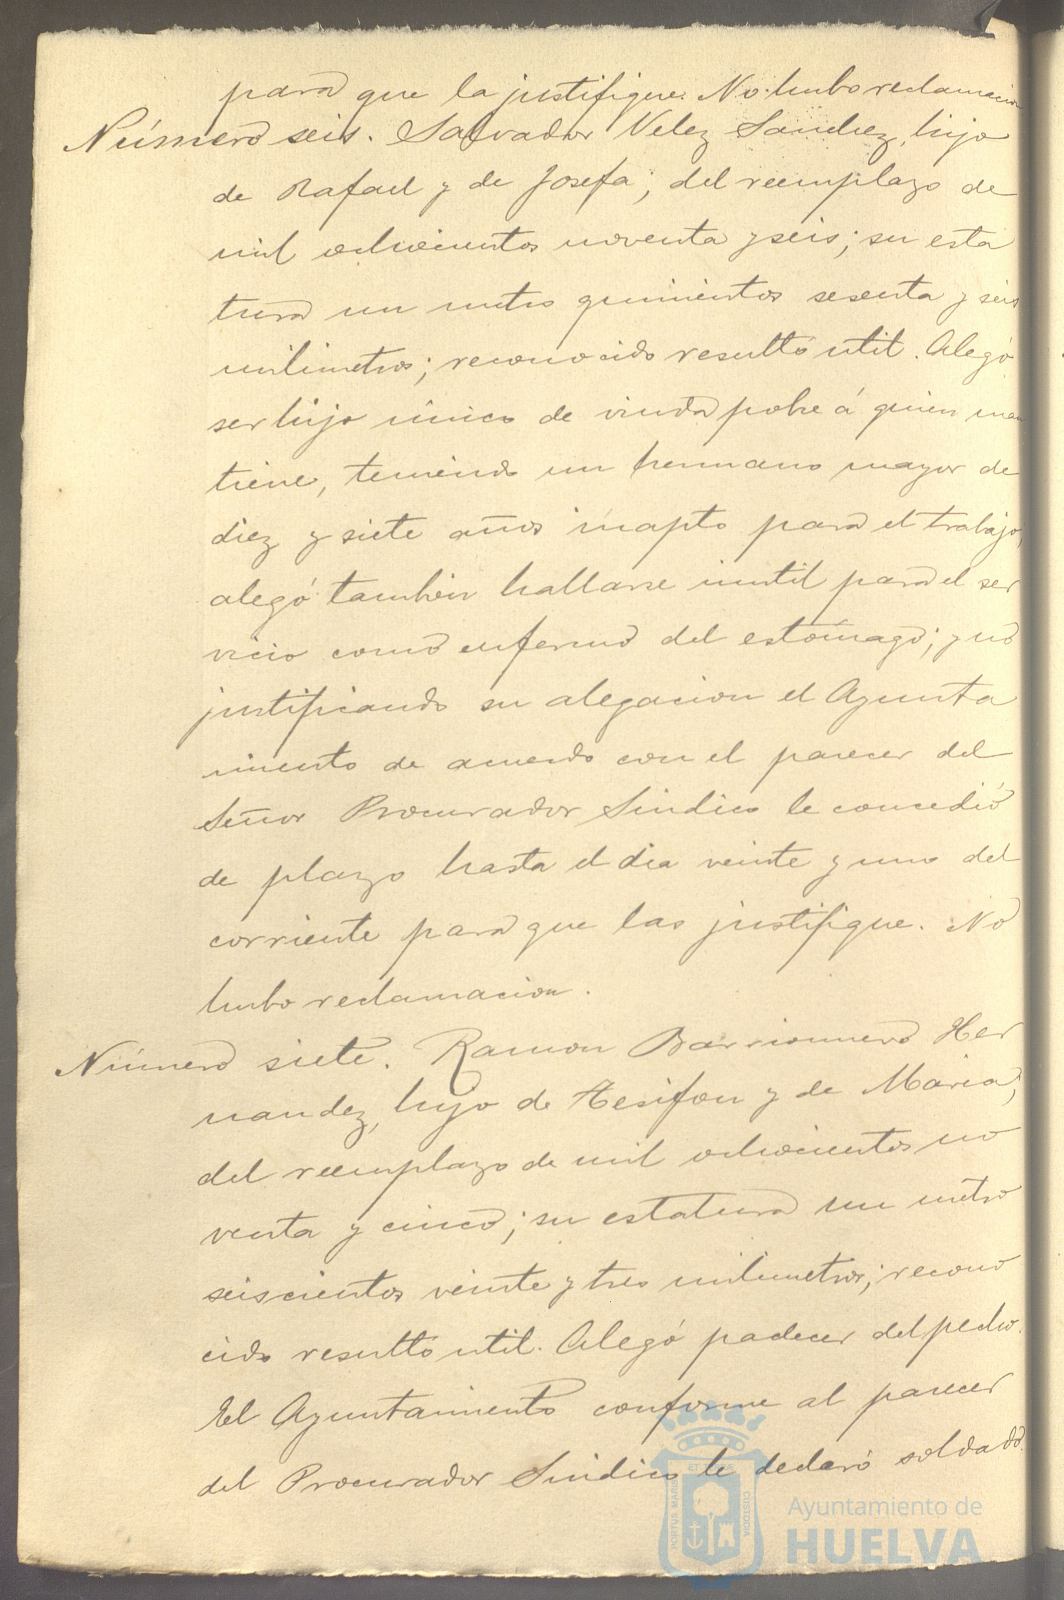 para que la justifique. No hubo reclamacion
Número seis. Salvador Velez Sanchez, hijo
de Rafael y de Josefa; del reemplazo de
mil ochocientos noventa y seis; su esta
tura un metro quinientos sesenta y seis
milimetros; reconocido resultó util. Alegó
ser hijo único de viuda pobre á quien man
tiene, teniendo un hermano mayor de
diez y siete años inapto para el trabajo,
alegó tambien hallarse inutil para el ser
vicio como enfermo del estómago; y no
justificando su alegacion el Ayunta
miento de acuerdo con el parecer del
Señor Procurador Sindico le concedió
de plazo hasta el dia veinte y uno del
corriente para que las justifique. No
hubo reclamacion.
Número siete. Ramon Barrionuevo Her
nandez, hijo de Tesifon y de Maria;
del reemplazo de mil ochocientos no
venta y cinco; su estatura un metro
seiscientos veinte y tres milimetros; recono
cido resultó util. Alegó padecer del pecho.
El Ayuntamiento conforme al parecer
del Procurador Sindico le declaró soldado.
PORTUS MARIS ET TERRAE CUSTODIA
Ayuntamiento de
HUELVA